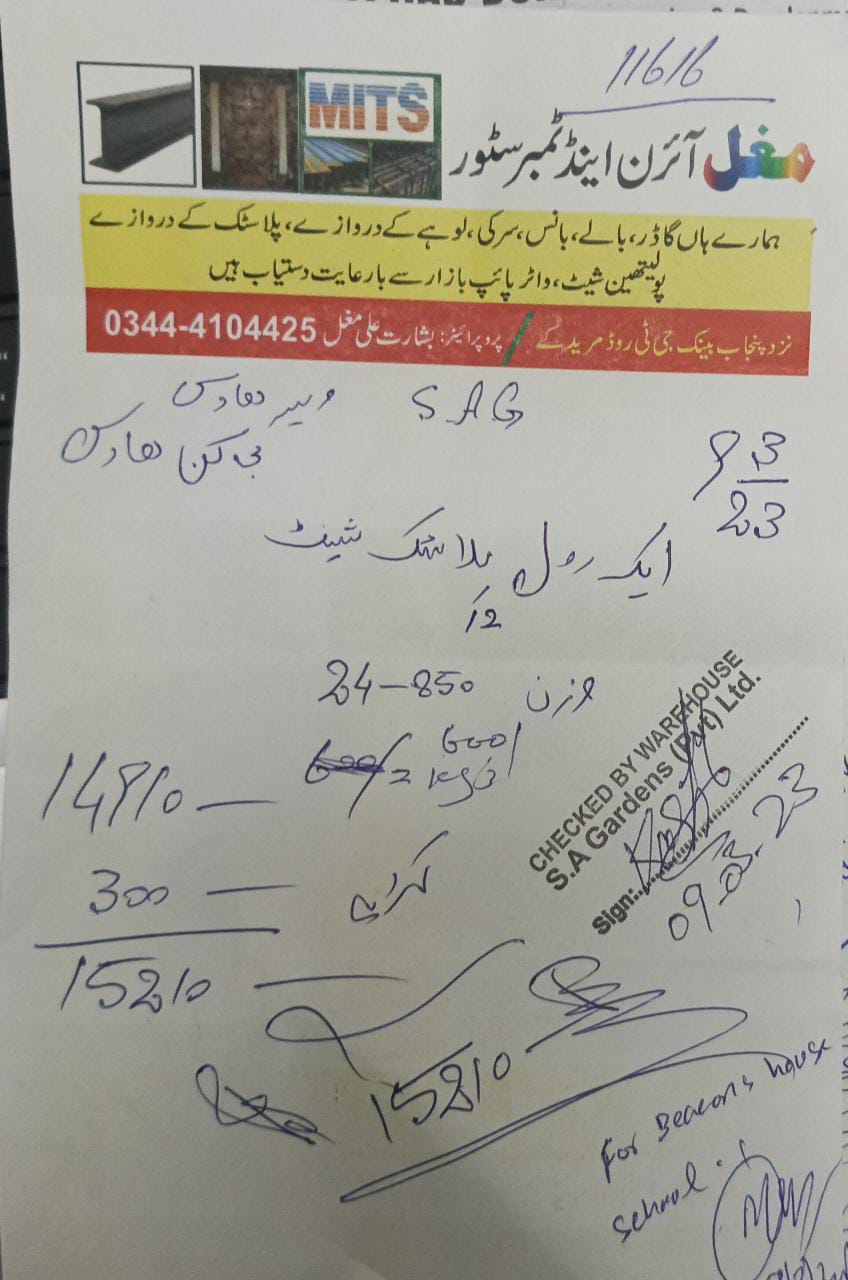 11616
MITS
مغل آئرن اینڈ ٹمبر سٹور
ہمارے ہاں گاڈر، بالے، بانس، سرکی، لوہے کے دروازے، پلاسٹک کے دروازے
پولیتھین شیٹ، واٹر پائپ بازار سے بارعایت دستیاب ہیں
نزد پنجاب بینک جی ٹی روڈ مریدکے / پروپرائیٹر: بشارت علی مغل 0344-4104425
SAG
9 3
23
ایک رول پلاسٹک شیٹ
12
وزن 24-850
600/
14910 —
کرایہ
300 —
15210 —
15210
CHECKED BY WAREHOUSE
S.A Gardens (Pvt) Ltd.
Sign:
09.03.23
For Beacons house
school.